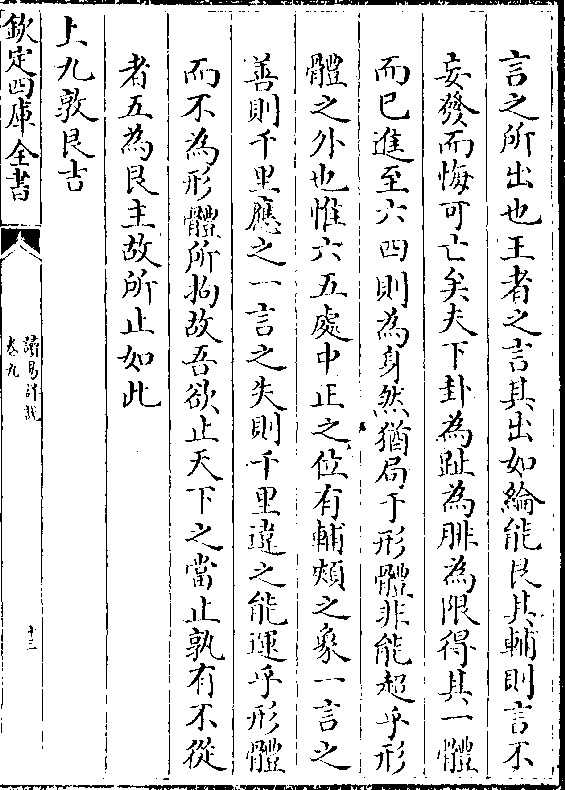 言之所出也王者之言其出如綸能艮其輔則言不
妄發而悔可亡矣夫下卦為趾為腓為限得其一體
而已進至六四則為身然猶局于形體非能超乎形
體之外也惟六五處中正之位有輔頰之象一言之
善則千里應之一言之失則千里違之能運乎形體
而不為形體所拘故吾欲止天下之當止孰有不從
者五為艮主故所止如此
上九敦艮吉
欽定四庫全書
讀易詳說
卷九
十三